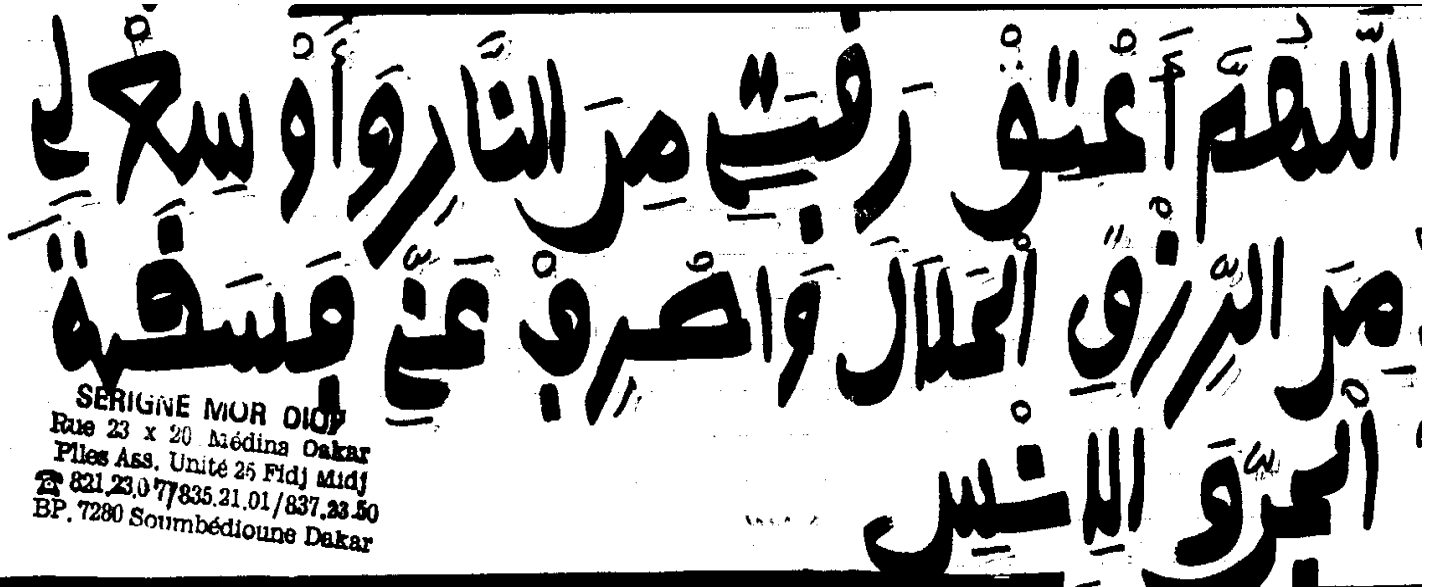 اَللَّهُمَّ أَعْتِقْ رَقَبَتِي مِنَ النَّارِ وَأَوْسِعْ لِي
مِنَ الرِّزْقِ الْحَلَالَ وَاصْرِفْ عَنِّي فَسَقَةَ
الْجِنِّ وَالِانْسِ
SERIGNE MOR DIOP
Rue 23 x 20 Médina Dakar
Plles Ass. Unité 25 Fidj Midj
☎ 821.23.07/835.21.01/837.23.50
BP. 7280 Soumbédioune Dakar